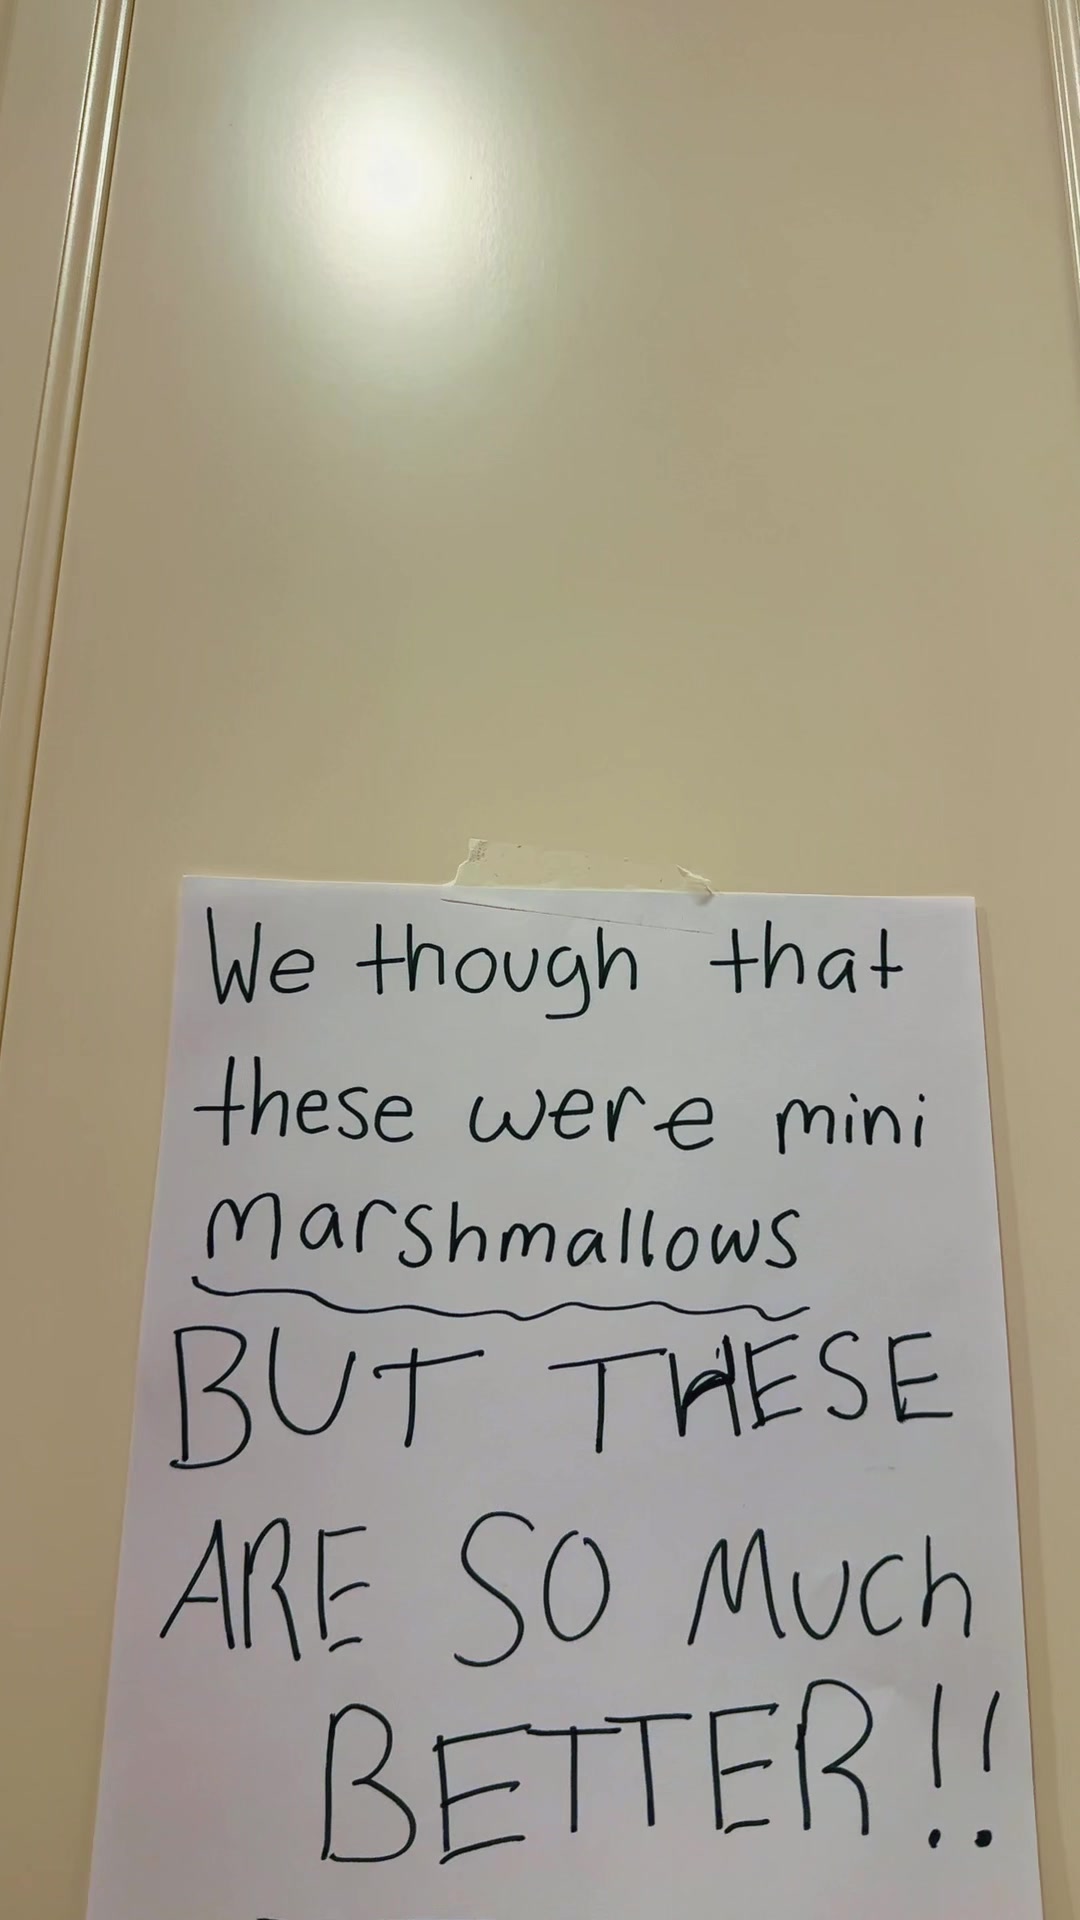 We though that
these were mini
marshmallows
BUT THESE
ARE SO MUch
BETTER!!